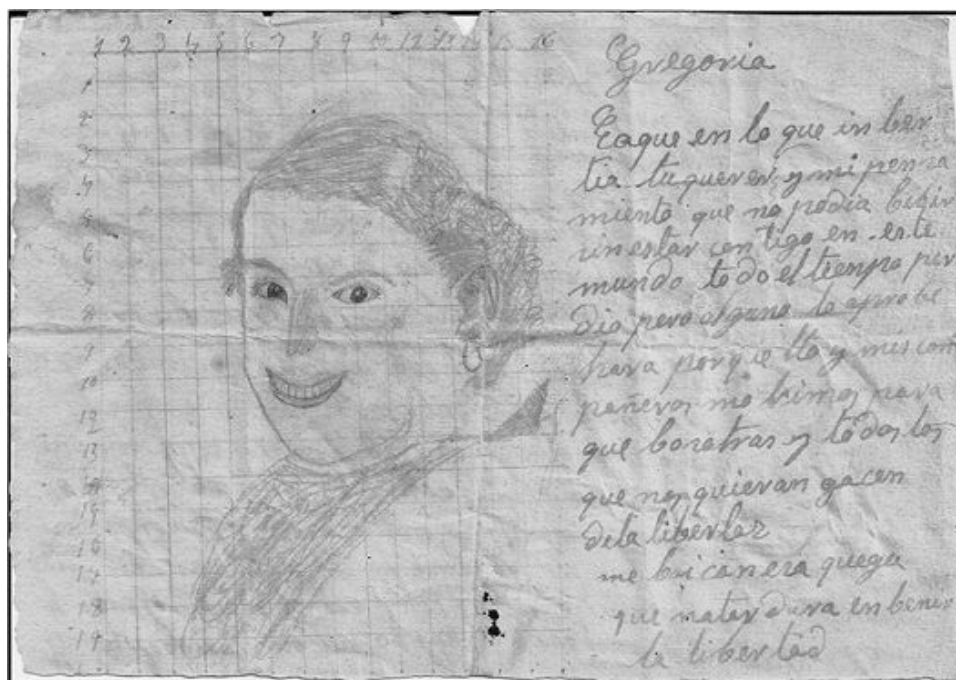 1 2 3 4 5 6 7 8 9 10 12 13 14 15 16
1
2
3
4
5
6
7
8
9
10
12
13
14
15
16
17
18
19
Gregoria
que en lo que in ber
tia tu querer y mi pensa
miento que no podia bibir
sin estar contigo en este
mundo todo el tiempo per
dio pero alguno lo aprobe
hara porque llo y mis com
pañeros mo rimos para
que bosotras y todos los
que nos quieran gacen
de la libertaz
me
que natardara en benir
la libertad